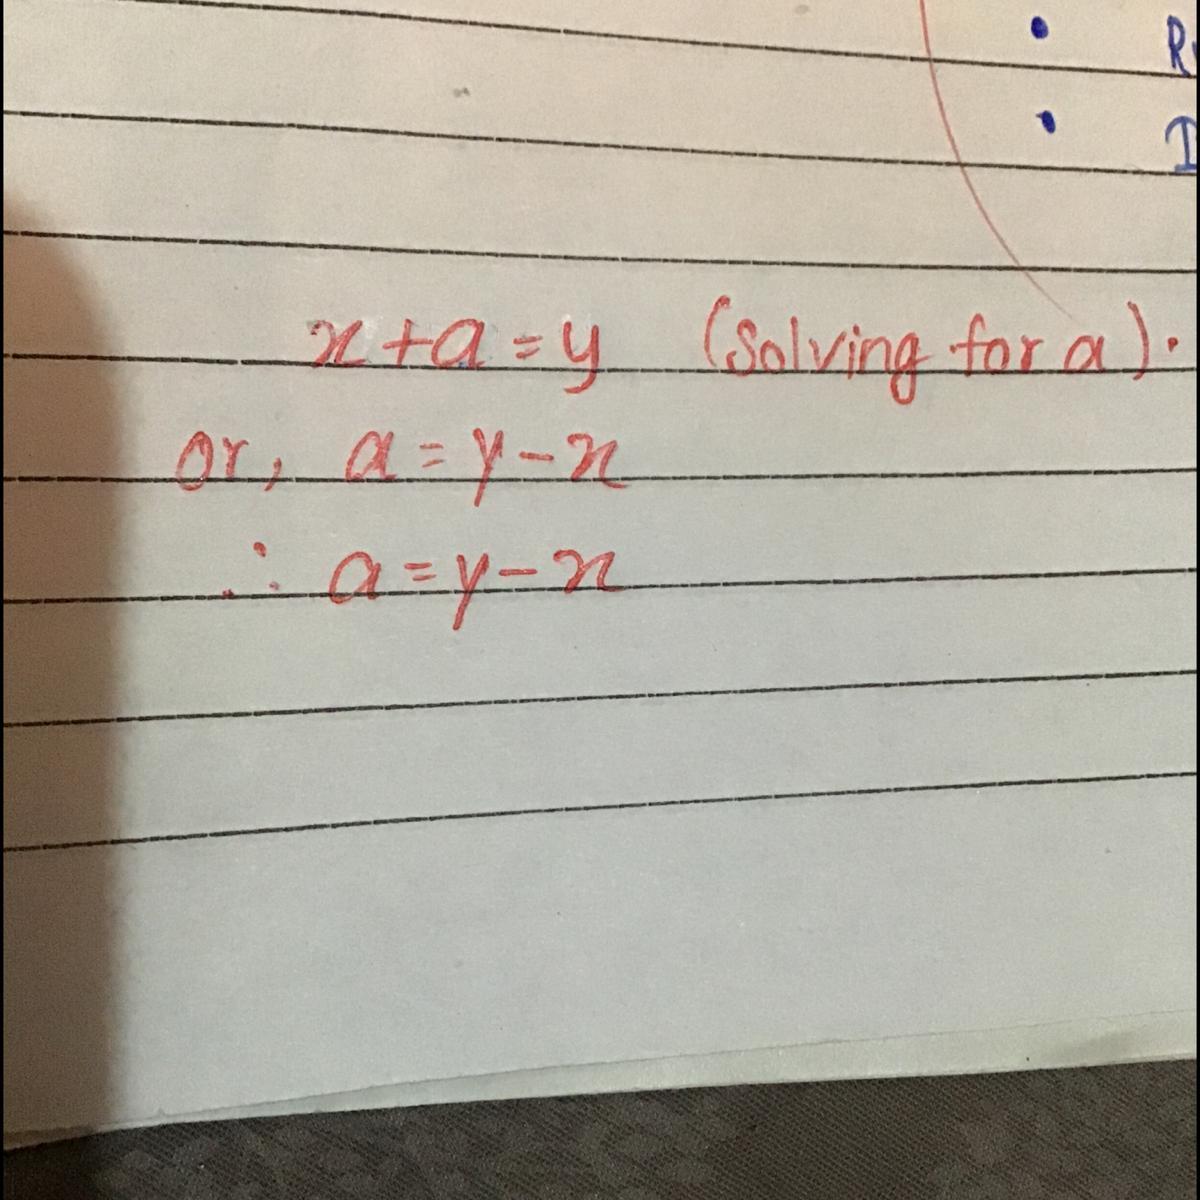 x+a=y (Solving for a).
or, a=y-x
∴ a=y-x